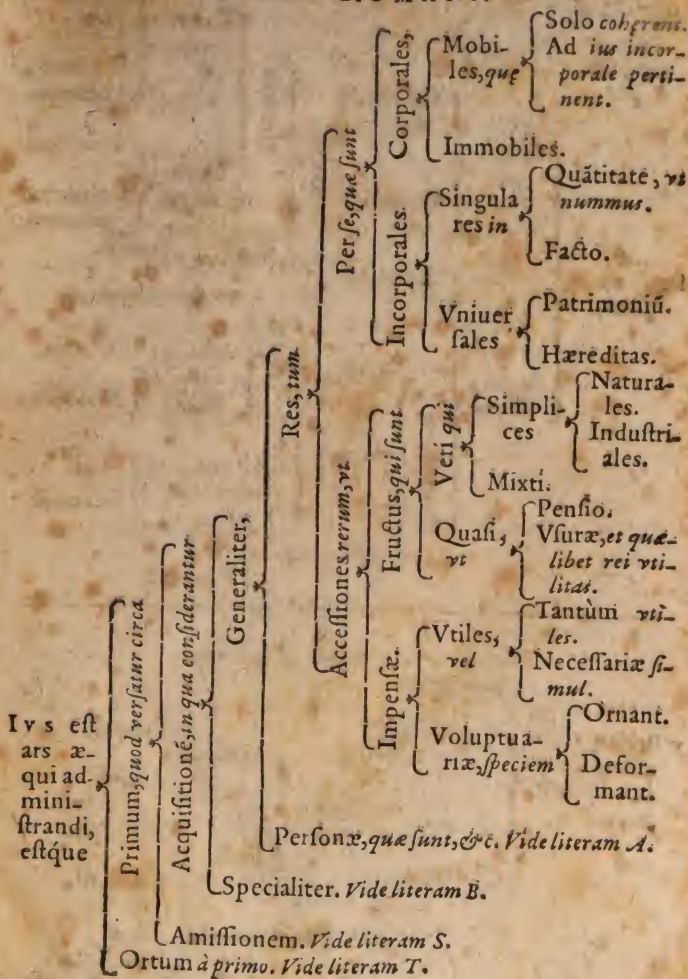 Ivs est
ars æ-
qui ad-
mini-
strandi,
estque
Primum, quod versatur circa
Acquisitioné, in qua considerantur
Generaliter,
Res, tum
Per se, quæ sunt
Corporales,
Mobi-
les, quę
Solo cohęrent.
Ad ius incor-
porale perti-
nent.
Immobiles.
Incorporales.
Singula
res in
Quãtitate, vt
nummus.
Facto.
Vniuer
sales
Patrimoniũ.
Hæreditas.
Accessiones rerum, vt
Fructus, qui sunt
Veri qui
Simpli-
ces
Natura-
les.
Industri-
ales.
Mixti.
Quasi,
vt
Pensio.
Vsuræ, et quæ-
libet rei vti-
litas.
Impensæ.
Vtiles,
vel
Tantùm vti-
les.
Necessariæ si-
mul.
Voluptua-
riæ, speciem
Ornant.
Defor-
mant.
Personæ, quæ sunt, &c. Vide literam A.
Specialiter. Vide literam B.
Amissionem. Vide literam S.
Ortum à primo. Vide literam T.